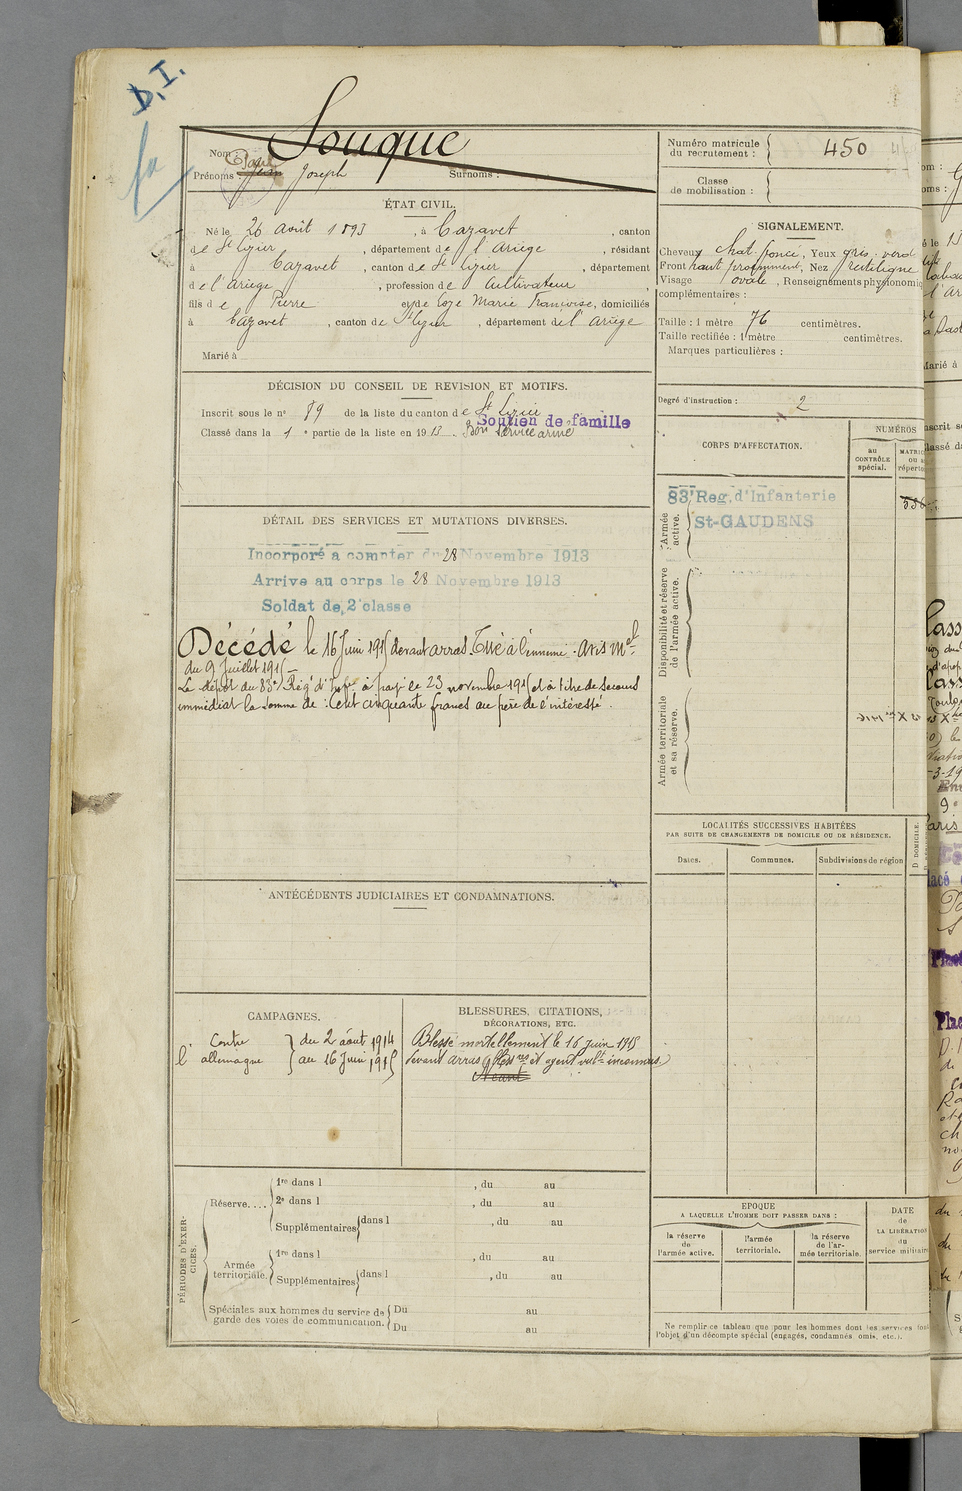 D.I.
Nom : Souque
Prénoms : Jean Paul Joseph Surnoms :
ÉTAT CIVIL.
Né le 26 août 1893, à Cazavet, canton
de St Lizier, département de l'Ariège, résidant
à Cazavet, canton de St Lizier, département
de l'Ariège, profession de Cultivateur,
fils de Pierre et de Loze Marie Françoise, domiciliés
à Cazavet, canton de St Lizier, département de l'Ariège
Marié à
DÉCISION DU CONSEIL DE REVISION ET MOTIFS.
Inscrit sous le n° 89 de la liste du canton de St Lizier
Classé dans la 1e partie de la liste en 1913. Bon service armé
Soutien de famille
DÉTAIL DES SERVICES ET MUTATIONS DIVERSES.
Incorporé à compter du 28 Novembre 1913
Arrive au corps le 28 Novembre 1913
Soldat de 2e classe
Décédé le 16 Juin 1915 devant arras. Tué à l'ennemi. Avis Mel
du 9 Juillet 1915 -
Le dépôt du 83e Rég d'Infie à payé le 23 novembre 1915 et à titre de secours
immédiat la somme de : Cent cinquante francs au père de l'intéressé.
ANTÉCÉDENTS JUDICIAIRES ET CONDAMNATIONS.
CAMPAGNES.
Contre l'allemagne } du 2 août 1914
au 16 Juin 1915
BLESSURES, CITATIONS,
DÉCORATIONS, ETC.
Blessé mortellement le 16 Juin 1915
devant arras (Bless res et agent vult inconnus)
Néant
PÉRIODES D'EXERCICES.
Réserve....
1re dans l , du au
2e dans l , du au
Supplémentaires dans l , du au
Armée territoriale.
1re dans l , du au
Supplémentaires dans l , du au
Spéciales aux hommes du service de
garde des voies de communication.
Du au
Du au
Numéro matricule
du recrutement : 450
Classe
de mobilisation :
SIGNALEMENT.
Cheveux chat. foncé, Yeux gris-verd
Front haut proémment, Nez rectiligne
Visage ovale, Renseignements physionomiq
complémentaires :
Taille : 1 mètre 76 centimètres.
Taille rectifiée : 1 mètre centimètres.
Marques particulières :
Degré d'instruction : 2
CORPS D'AFFECTATION.
NUMÉROS
au
CONTRÔLE
spécial.
MATRIC
ou a
réperto
Armée
active.
83e Reg. d'Infanterie
St-GAUDENS
Disponibilité et réserve
de l'armée active.
Armée territoriale
et sa réserve.
LOCALITÉS SUCCESSIVES HABITÉES
PAR SUITE DE CHANGEMENTS DE DOMICILE OU DE RÉSIDENCE.
Dates. Communes. Subdivisions de région D. DOMICILE.
EPOQUE
A LAQUELLE L'HOMME DOIT PASSER DANS :
la réserve
de
l'armée active.
l'armée
territoriale.
la réserve
de l'ar-
mée territoriale.
DATE
de
LA LIBÉRATION
du
service militaire
Ne remplir ce tableau que pour les hommes dont les services
l'objet d'un décompte spécial (engagés, condamnés omis, etc.).